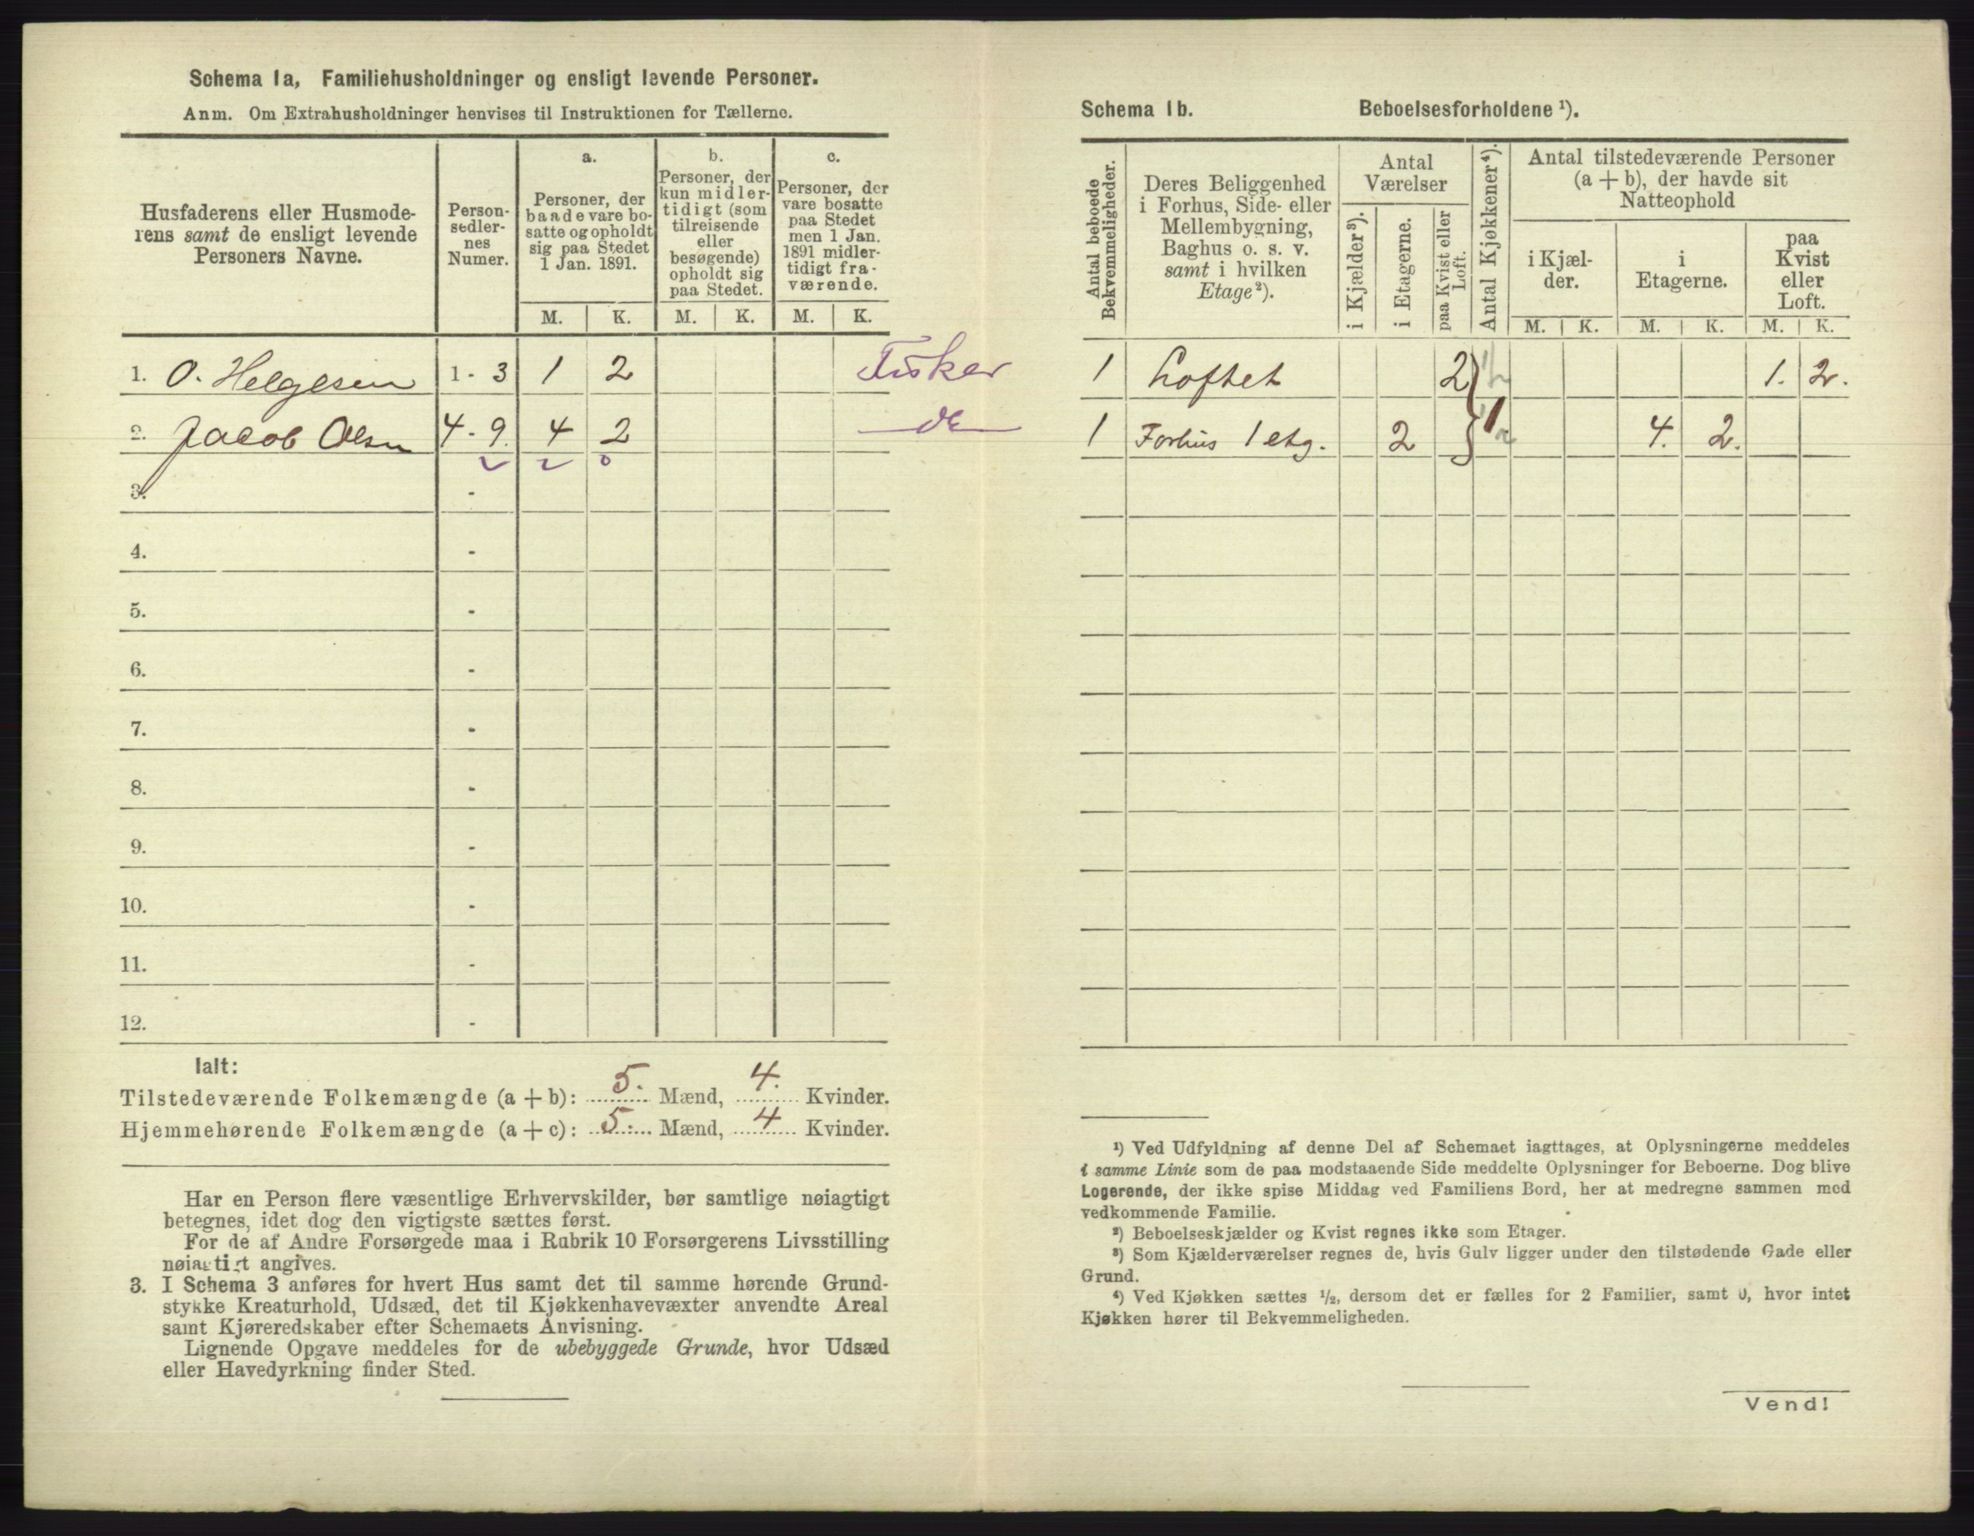 Schema 1a, Familiehusholdninger og ensligt levende Personer.
Anm. Om Extrahusholdninger henvises til Instruktionen for Tællerne.
Husfaderens eller Husmode-
rens samt de ensligt levende
Personers Navne.
Person-
sedler-
nes
Numer.
a.
Personer, der
baade vare bo-
satte og opholdt
sig paa Stedet
1 Jan. 1891.
b.
Personer, der
kun midler-
tidigt (som
tilreisende
eller
besøgende)
opholdt sig
paa Stedet.
c.
Personer, der
vare bosatte
paa Stedet
men 1 Jan.
1891 midler-
tidigt fra-
værende.
M. K. M. K. M. K.
1. O. Helgesen 1 - 3 1 2 Fisker
2. Jacob Olsen 4 - 9. 4 2 do
3. -
4. -
5. -
6. -
7. -
8. -
9. -
10. -
11. -
12. -
Ialt:
Tilstedeværende Folkemængde (a + b): 5. Mænd, 4. Kvinder.
Hjemmehørende Folkemængde (a + c): 5. Mænd, 4 Kvinder.
Har en Person flere væsentlige Erhvervskilder, bør samtlige nøiagtigt
betegnes, idet dog den vigtigste sættes først.
For de af Andre Forsørgede maa i Rubrik 10 Forsørgerens Livsstilling
nøiagtigt angives.
3. I Schema 3 anføres for hvert Hus samt det til samme hørende Grund-
stykke Kreaturhold, Udsæd, det til Kjøkkenhavevæxter anvendte Areal
samt Kjøreredskaber efter Schemaets Anvisning.
Lignende Opgave meddeles for de ubebyggede Grunde, hvor Udsæd
eller Havedyrkning finder Sted.
Schema 1b. Beboelsesforholdene ¹).
Antal beboede
Bekvemmeligheder.
Deres Beliggenhed
i Forhus, Side- eller
Mellembygning,
Baghus o. s. v.
samt i hvilken
Etage²).
Antal
Værelser
i Kjælder³).
i Etagerne.
paa Kvist eller
Loft.
Antal Kjøkkener⁴).
Antal tilstedeværende Personer
(a + b), der havde sit
Natteophold
i Kjæl-
der.
i
Etagerne.
paa
Kvist
eller
Loft.
M. K. M. K. M. K.
1 Loftet 2 1/2 1. 2.
1 Forhus 1 etg. 2 1 4. 2.
¹) Ved Udfyldning af denne Del af Schemaet iagttages, at Oplysningerne meddeles
i samme Linie som de paa modstaaende Side meddelte Oplysninger for Beboerne. Dog blive
Logerende, der ikke spise Middag ved Familiens Bord, her at medregne sammen med
vedkommende Familie.
²) Beboelseskjælder og Kvist regnes ikke som Etager.
³) Som Kjælderværelser regnes de, hvis Gulv ligger under den tilstødende Gade eller
Grund.
⁴) Ved Kjøkken sættes ½, dersom det er fælles for 2 Familier, samt 0, hvor intet
Kjøkken hører til Bekvemmeligheden.
Vend!